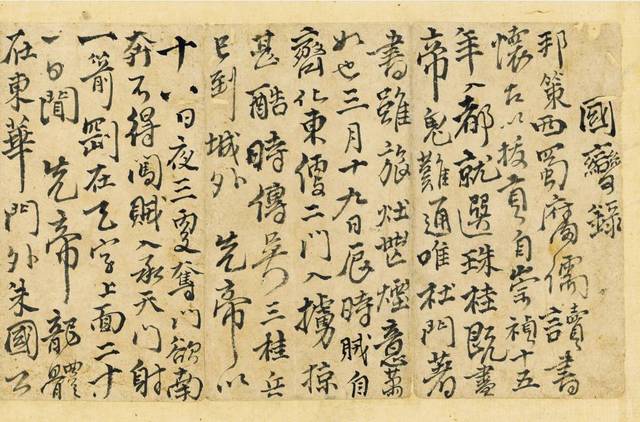 國變錄
邦策西蜀腐儒讀書
懷古以拔貢自崇禎十五
年入都就選珠桂既盡
帝鬼難通唯杜門著
書雖旅灶煙意蕭
如也三月十九日辰時賊自
齊化東便二門入擄掠
甚酷時傳吳三桂兵
已到城外 先帝以
十八日夜三更奪門欲南
奔不得闖賊入承天門射
一箭劄在天字上面二十
一日聞 先帝龍體
在東華門外朱國公